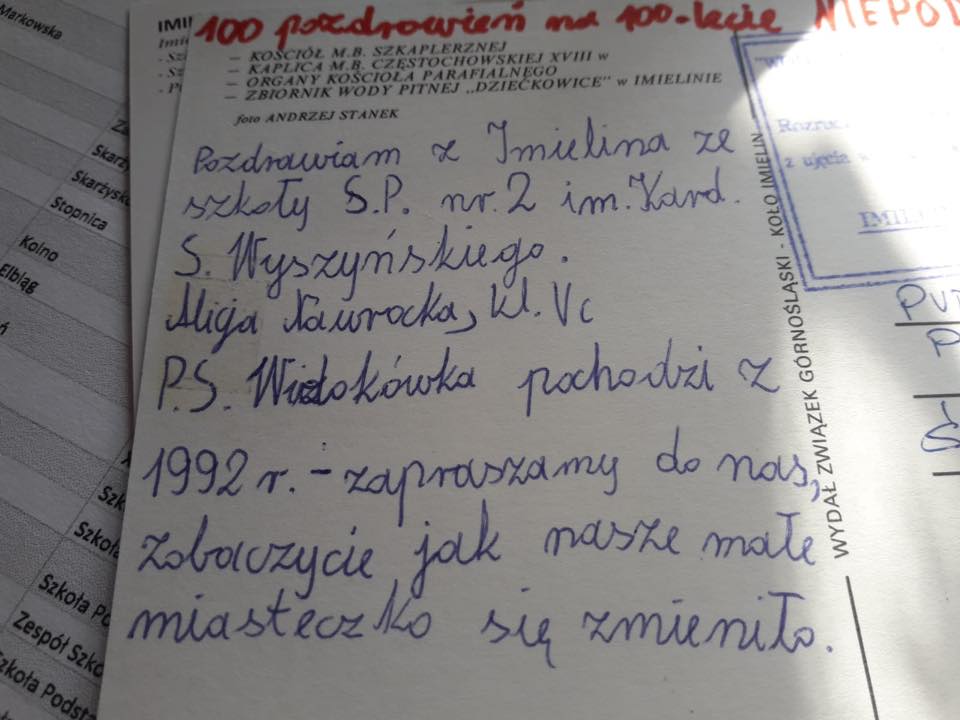 Markowska
Skarży
Skarżysko
Stopnica
Kolno
Elbląg
Szkoła
Szkoła Po
Zespół Szko
Szkoła Podsta
100 pozdrowień na 100-lecie NIEPOD
— KOŚCIÓŁ M.B. SZKAPLERZNEJ
— KAPLICA M.B. CZĘSTOCHOWSKIEJ XVIII w
— ORGANY KOŚCIOŁA PARAFIALNEGO
— ZBIORNIK WODY PITNEJ „DZIEĆKOWICE" w IMIELINIE
foto ANDRZEJ STANEK
Pozdrawiam z Imielina ze
szkoły S.P. nr.2 im.Kard.
S. Wyszyńskiego.
Alicja Nawrocka, kl. Vc
P.S. Widokówka pochodzi z
1992 r. - zapraszamy do nas,
zobaczycie jak nasze małe
miasteczko się zmieniło.
WYDAŁ ZWIĄZEK GÓRNOŚLĄSKI - KOŁO IMIELIN
z ujęcia